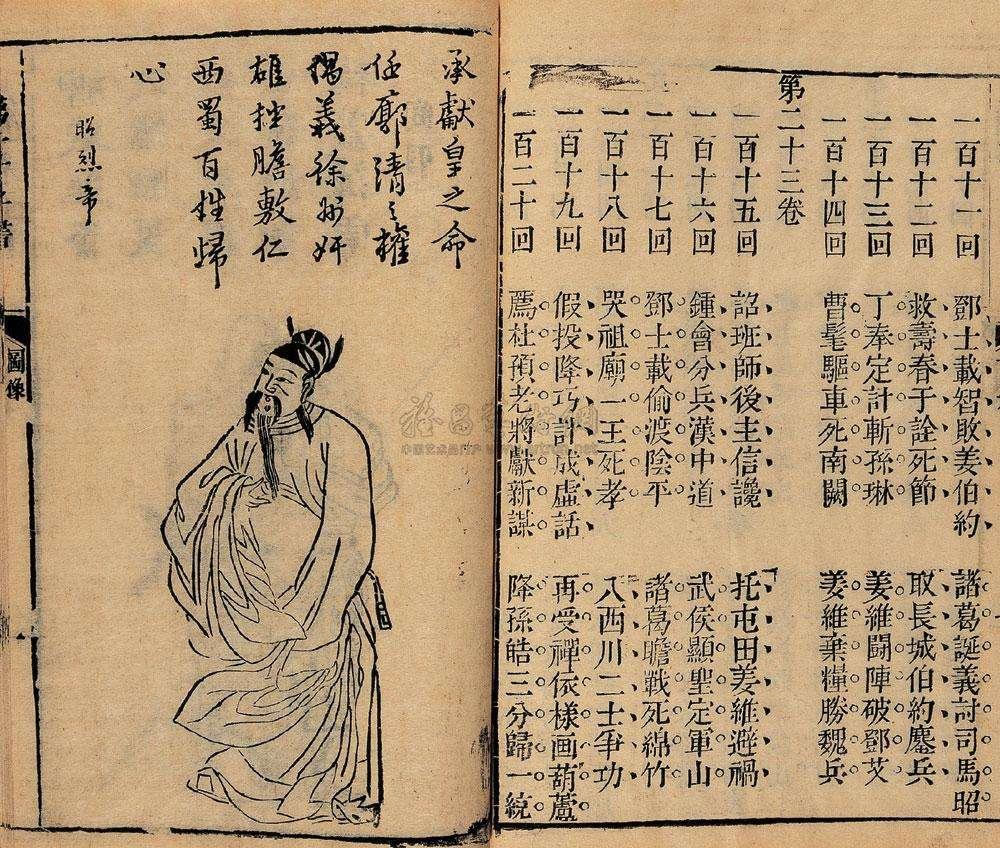 一百十一回 鄧士載智敗姜伯約 諸葛誕義討司馬昭
一百十二回 救壽春于詮死節 取長城伯約鏖兵
一百十三回 丁奉定計斬孫琳 姜維鬪陣破鄧艾
一百十四回 曹髦驅車死南闕 姜維棄糧勝魏兵
第二十三卷
一百十五回 詔班師後主信讒 托屯田姜維避禍
一百十六回 鍾會分兵漢中道 武侯顯聖定軍山
一百十七回 鄧士載偷渡陰平 諸葛瞻戰死綿竹
一百十八回 哭祖廟一王死孝 入西川二士爭功
一百十九回 假投降巧計成虛話 再受禪依樣画葫蘆
一百二十回 薦杜預老將獻新謀 降孫皓三分歸一統
承獻皇之命
任廓清之權
義徐州奸
雄挫膽敷仁
西蜀百姓歸
心
昭烈帝
圖像